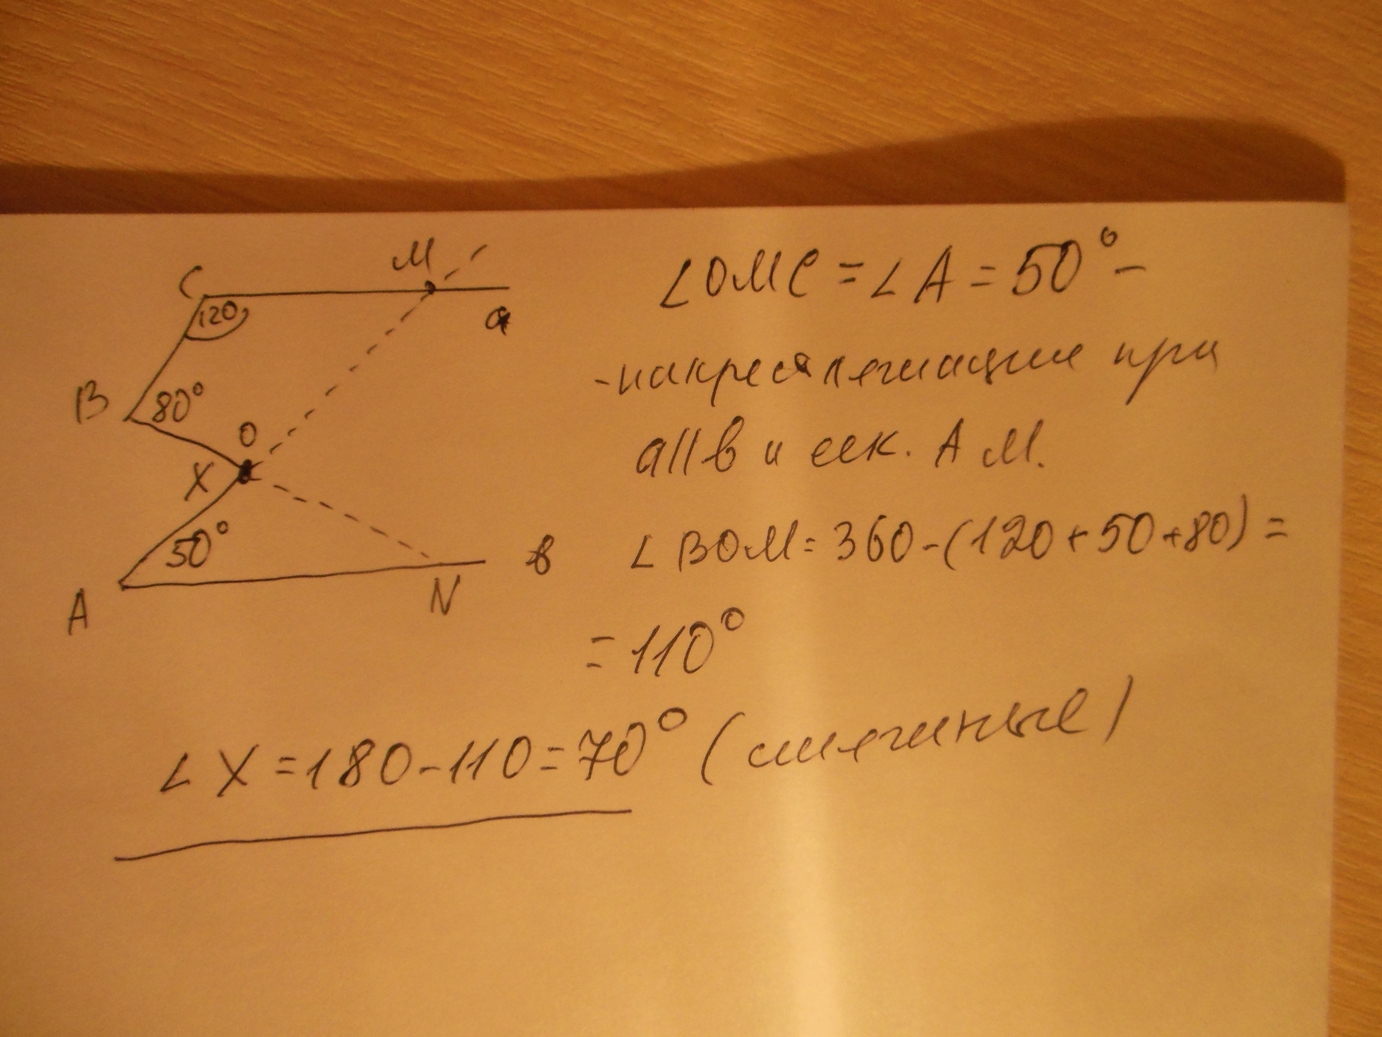 C
M
120
a
B
80°
O
X
50°
A
N
в
∠OMC = ∠A = 50° –
- накрест лежащие при
a||в и сек. AM.
∠BOM = 360 - (120 + 50 + 80) =
= 110°
∠X = 180 - 110 = 70° (смежные)